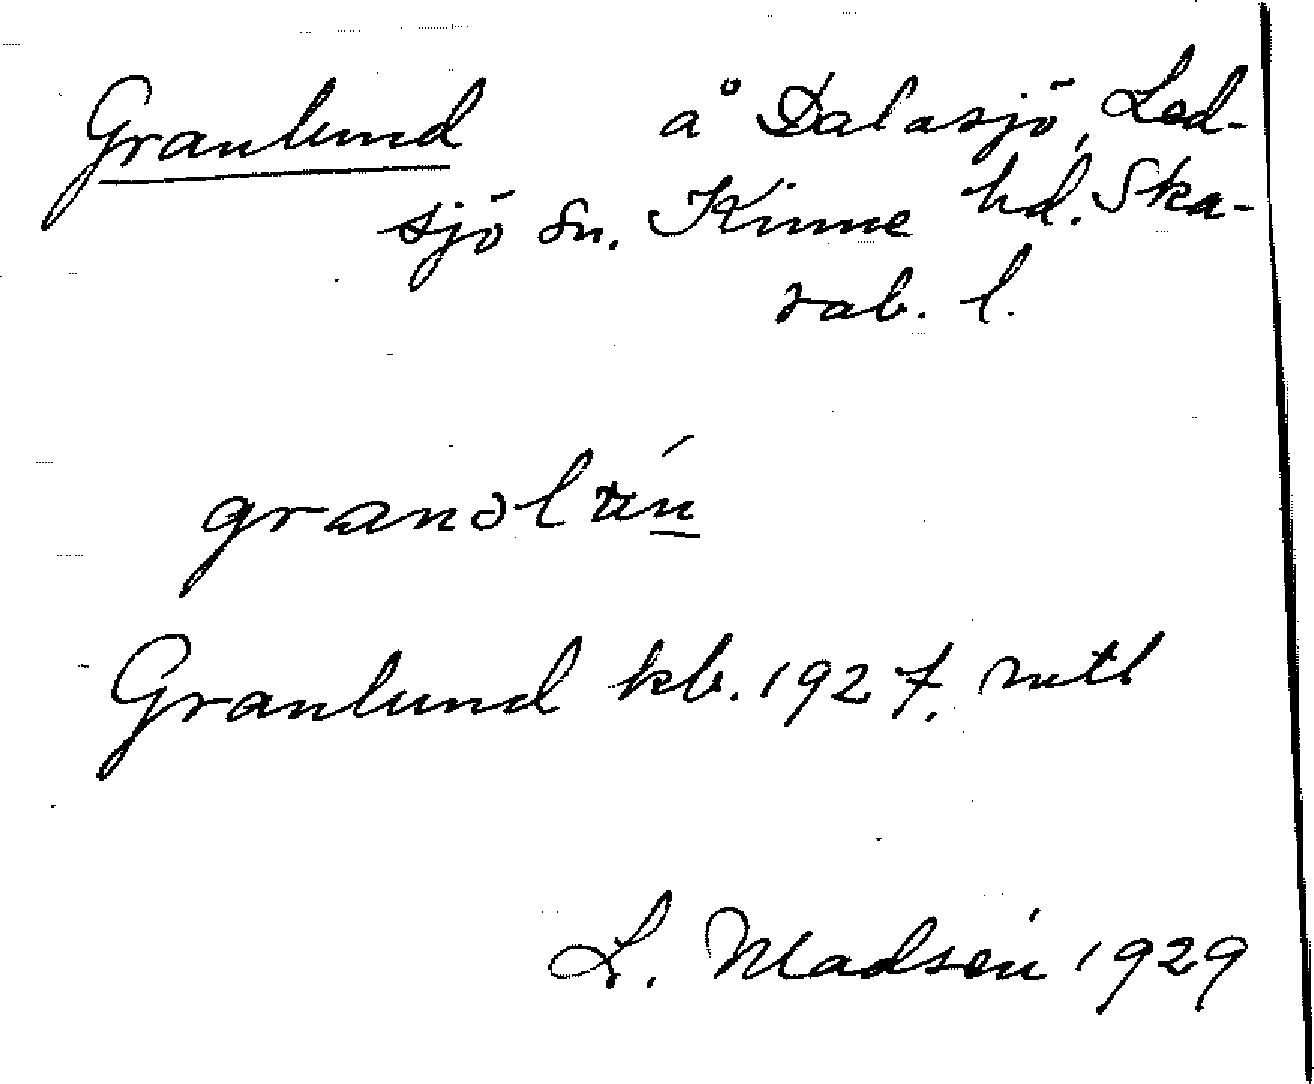 Granlund å Dalasjö, Led-
sjö sn. Kinne hd. Ska-
rab. l.
Granlund kb. 1927.
L. Madsén 1929